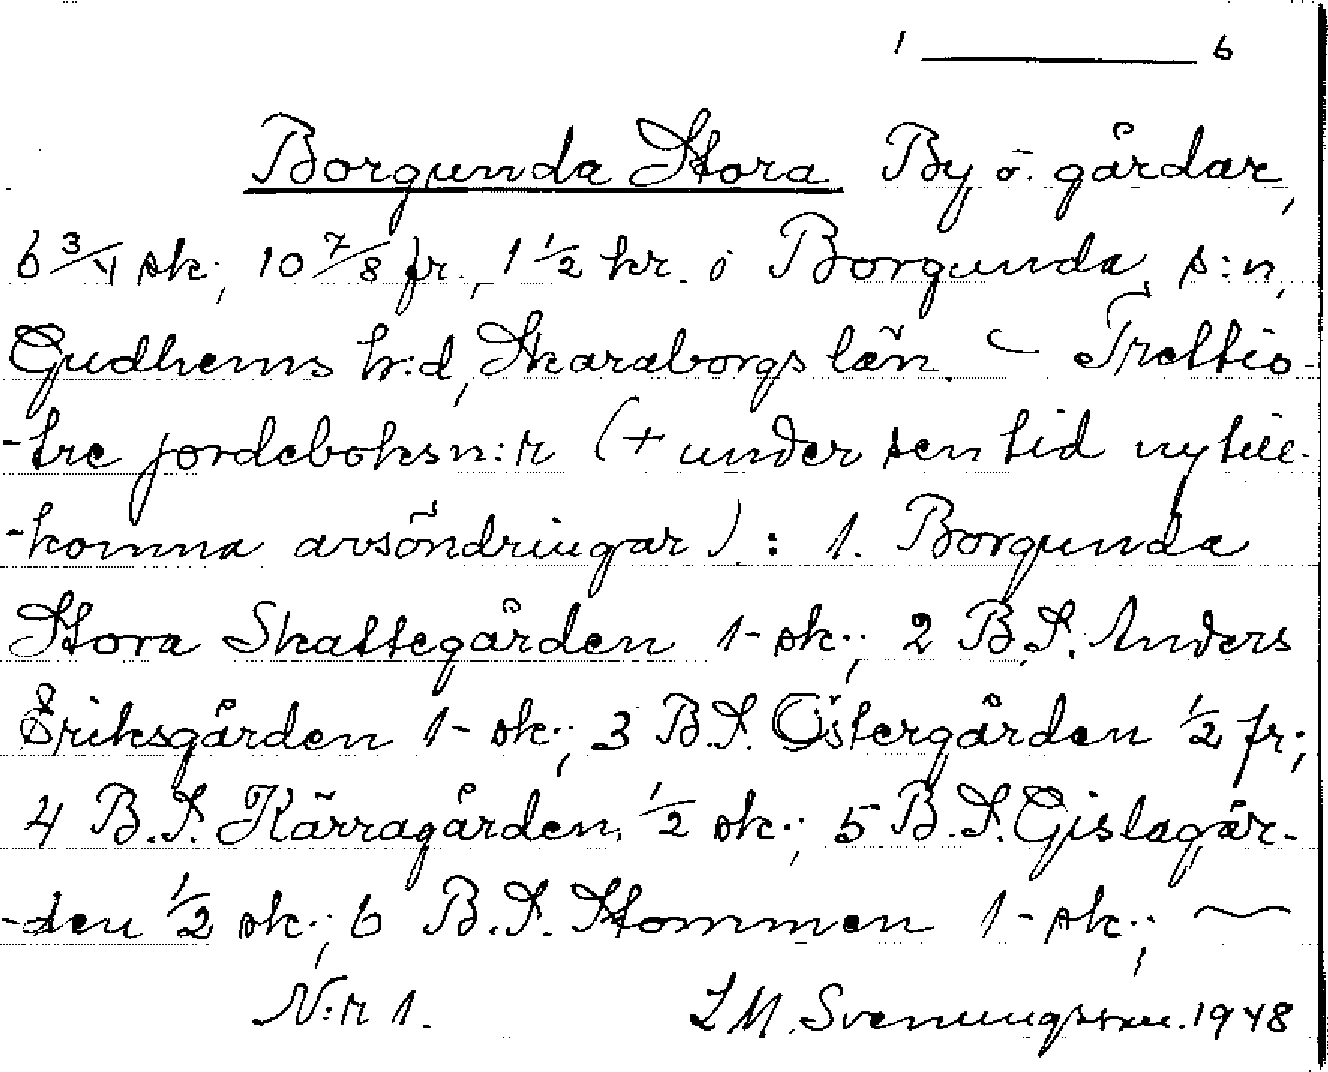 1 ——— 6
Borgunda Stora By o. gårdar,
6 3/4 sk., 10 7/8 fr., 1 1/2 kr. i Borgunda s:n,
Gudhems h:d, Skaraborgs län. — Trettio-
-tre jordeboksn:r (+ under sen tid nytill-
-komna avsöndringar): 1. Borgunda
Stora Skattegården 1- sk.; 2 B.S. Anders
Eriksgården 1- sk.; 3 B.S. Östergården 1/2 fr.;
4 B.S. Kärragården, 1/2 sk.; 5 B.S. Gislagår-
-den 1/2 sk.; 6 B.S. Stommen 1- sk.; ~
N:r 1. L M. Svenungsson. 1948